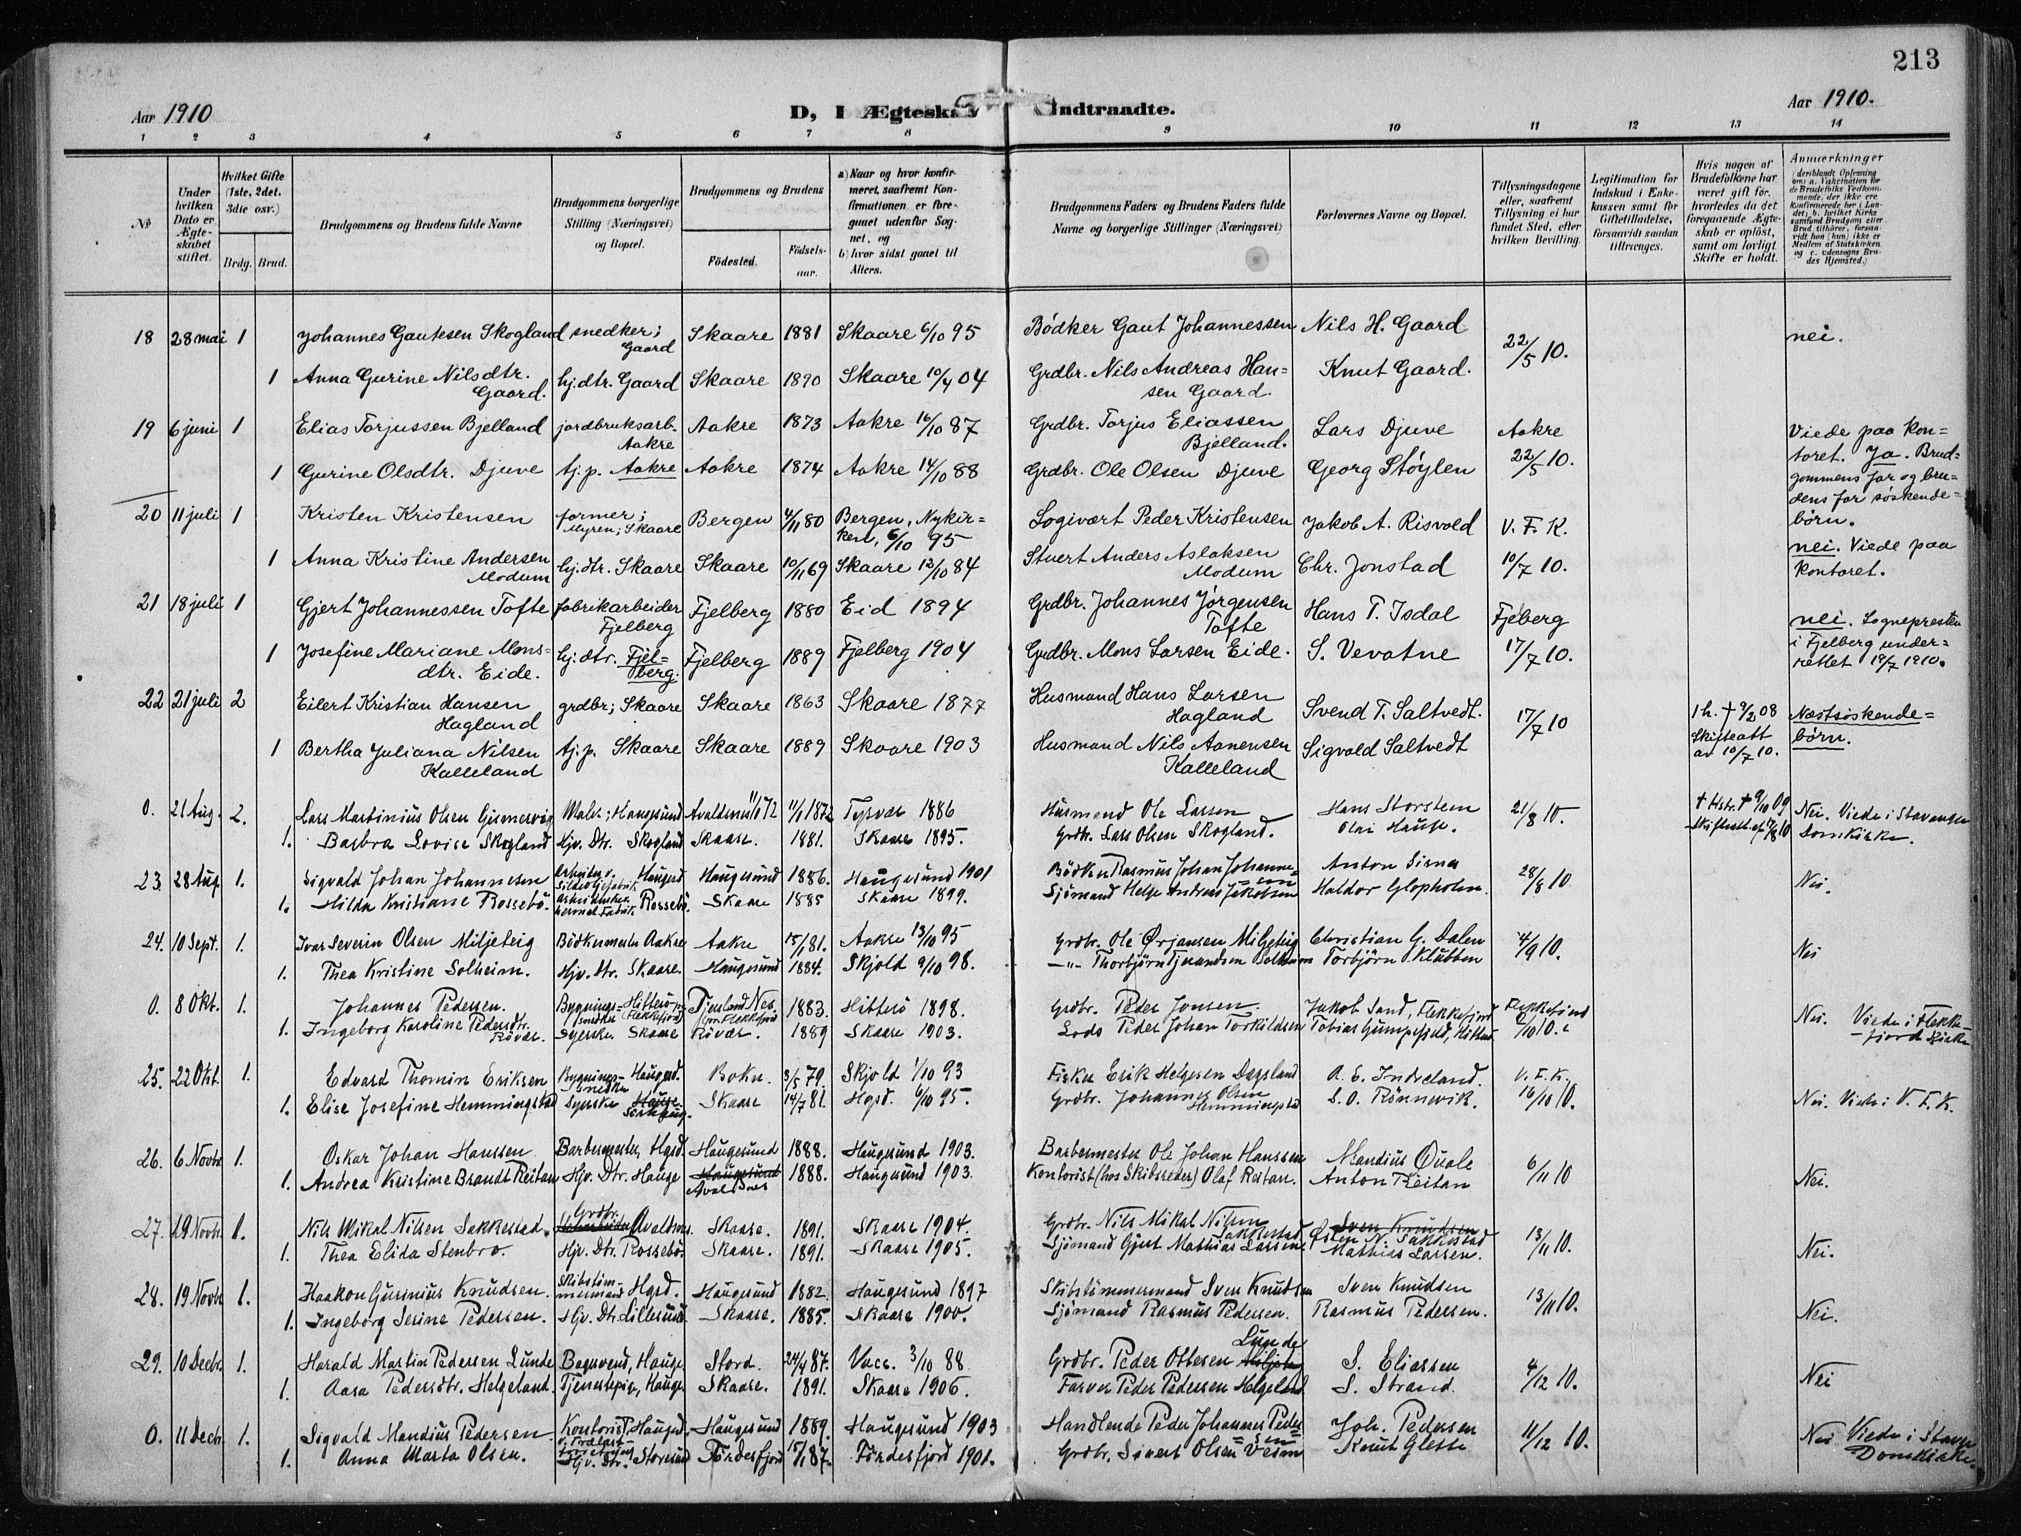 213
Aar 1910
D, I Ægteska Indtraadte.
Aar 1910.
1 2 3 4 5 6 7 8 9 10 11 12 13 14
№
Under hvilken Dato er Ægteskabet stiftet.
Hvilket Gifte (1ste, 2det, 3die osv.)
Brdg. Brud.
Brudgommens og Brudens fulde Navne
Brudgommens borgerlige Stilling (Næringsvei) og Bopæl.
Brudgommens og Brudens
Fødested.
Fødselsaar.
a) Naar og hvor konfirmeret, saafremt Konfirmationen er foregaaet udenfor Sognet, og
b) hvor sidst gaaet til Alters.
Brudgommens Faders og Brudens Faders fulde Navne og borgerlige Stillinger (Næringsvei)
Forlovernes Navne og Bopæl.
Tillysningsdagene eller, saafremt Tillysning ei har fundet Sted, efter hvilken Bevilling.
Legitimation for Indskud i Enkekassen samt for Giftetilladelse, forsaavidt saadan tiltrænges.
Hvis nogen af Brudefolkene har været gift før, hvorledes da det foregaaende Ægteskab er opløst, samt om lovligt Skifte er holdt.
Anmærkninger
18 28 mai 1 Johannes Gautesen Skogland snedker; Gaard Skaare 1881 Skaare 6/10 95 Bødker Gaut Johannessen Nils H. Gaard 22/5 10. nei.
1 Anna Gurine Nilsdtr. Gaard. hj. dtr. Gaard Skaare 1890 Skaare 10/4 04 Grdbr. Nils Andreas Hansen Gaard. Knut Gaard.
19 6 juni 1 Elias Torjussen Bjelland jordbruksarb. Aakre Aakre 1873 Aakre 16/10 87 Grdbr. Torjus Eliassen Bjelland. Lars Djuve Aakre 22/5 10. Viede paa kontoret. Ja. Brudgommens far og brudens far søskendebørn.
1 Gurine Olsdtr. Djuve tj. p. Aakre Aakre 1874 Aakre 14/10 88 Grdbr. Ole Olsen Djuve Georg Støylen
20 11 juli 1 Kristen Kristensen former; Myren; Skaare Bergen 4/11 80 Bergen, Nykirken, 6/10 95 Logivært Peder Kristensen Jakob A. Risvold V. F. K. 10/7 10. nei. Viede paa kontoret.
1 Anna Kristine Andersen Modum hj. dtr. Skaare Skaare 10/11 69 Skaare 12/10 84 Stuert Anders Aslaksen Modum Chr. Jonstad
21 18 juli 1 Gjert Johannessen Tofte fabrikarbeider Fjelberg Fjelberg 1880 Eid 1894 Grdbr. Johannes Jørgensen Tofte Hans T. Isdal Fjeberg 17/7 10. nei. Sognepresten i Fjelberg underrettet 19/7 1910.
1 Josefine Mariane Monsdtr. Eide. hj. dtr. Fjelberg. Fjelberg 1889 Fjelberg 1904 Grdbr. Mons Larsen Eide. S. Vevatne
22 21 juli 2 Eilert Kristian Hansen Hagland grdbr; Skaare Skaare 1863 Skaare 1877 Husmand Hans Larsen Hagland Svend T. Saltvedt. 17/7 10 1 h. † 9/2 08 Skifteatt av 10/7 10. Næstsøskendebørn.
1 Bertha Juliana Nilsen Kalleland tj. p. Skaare Skaare 1889 Skaare 1903 Husmand Nils Aanensen Kalleland Sigvald Saltvedt
0. 21 Aug. 2. Lars Martinius Olsen Haugesund 11/1 1872 Tysvær 1886 Husmand Ole Larsen Hans Storstein 21/8 10. Nei. Viede i Stavanger Domkirke.
1. Barbra Lovise Skogland Hjv. Dtr. Skogland Skaare. 1881. Skaare 1895. Grdbr. Lars Olsen Skogland. Olai Hauge.
23 28 Aug. 1. Sigvald Johan Johannesen Haugesund 1886. Haugesund 1901 Bødker Rasmus Johan Johannessen Anton 28/8 10 Nei.
1. Hilda Kristiane Rossebö. Rossebö. Skaare 1885 Skaare 1899. Sjömand Helge Andreas Jakobsen Haldor
24. 10 Sept. 1. Ivar Severin Olsen Miljeteig Bödkermester Aakre Aakre 15/1 81. Aakre 13/10 95 Grdbr. Ole Ørjansen Miljeteig Christian G. Dalen 4/9 10. Nei
1. Thea Kristine Solheim. Hjv. Dtr. Skaare. Haugesund 1884. Skjold 9/10 98. —"— Thorbjörn Torbjörn Klubben
0. 8 Okt. 1. Johannes Pedersen. 1883. Hitterö 1898. Grdbr. Peder Jonsen Jakob Sand, Flekkefjord Flekkefjord 2/10 10. Nei. Viede i Flekkefjord Kirke
1. Ingeborg Karoline Pedersdtr. Røvær. Syerske Skaare Røvær. 1889 Skaare 1903. Lods Peder Johan Torkildsen Tobias
25. 22 Okt. 1. Edvard Thomin Eriksen Bygningssnedker Haugesd. Bokn. 3/5 79. Skjold 1/10 93 Fisker Erik Helgesen A. E. Indreland. V. F. K. 16/10 10. Nei. Viede i V. F. K.
1. Elise Josefine Hemmingstad Syerske Skaare 14/7 81. Hgsd. 6/10 95. Grdbr. Johannes Olsen Hemmingstad L. O. Rönnevik.
26. 6 Novbr. 1. Oskar Johan Hanssen Barbermester, Hgsd. Haugesund 1888. Haugesund 1903. Barbermester Ole Johan Hanssen Mandius Qvale 6/11 10 Nei.
1. Andrea Kristine Brandt Reitan Hjv. Dtr. Hauge Haugesund Avaldsnes 1888. Haugesund 1903. Kontorist (hos Skibsreder) Olaf Reitan. Anton Reitan
27. 19 Novbr. 1. Nils Mikal Nilsen Sakkestad. Grdbr. Avaldsnes Skaare. 1891. Skaare 1904. Grdbr. Nils Mikal Nilsen Sakkestad Sven Knudsen Østen N. Sakkestad 13/11 10. Nei.
1. Thea Elida Stenbro. Hjv. Dtr. Rossebö. Skaare. 1891. Skaare 1905. Sjömand Gjert Mathias Larsen Mathias Larsen.
28. 19 Novbr. 1. Haakon Gurinius Knudsen. Skibstømmermand Hgsd. Haugesund 1882. Haugesund 1897 Skibstömmermand Sven Knudsen Sven Knudsen 13/11 10. Nei.
1. Ingeborg Serine Pedersen. Hjv. Dtr. Lillesund. Skaare 1885. Skaare 1900. Sjömand Rasmus Pedersen. Rasmus Pedersen.
29. 10 Decbr. 1. Harald Martin Pedersen Lunde Bagersvend, Hauge Stord. 24/4 87. Vacc. 3/10 88 Grdbr. Peder Ottesen Lunde S. Eliassen 4/12 10. Nei
1. Aasa Pedersdtr. Helgeland. Tjenestepige, Hauge Skaare. 1891. Skaare 1906. Farver Peder Pedersen Helgeland S. Strand.
0. 11 Decbr. 1. Sigvald Mandius Pedersen Kontorist, Haugesund 1889. Haugesund 1903 Handlende Peder Johannes Pedersen Joh. Pedersen 11/12 10. Nei Viede i Stavgr Domkirke.
1. Anna Marta Olsen. Hjv. Dtr. Storesund Førdesfjord 15/1 87. Førdesfjord 1901. Grdbr. Sivert Olsen Knut Glette